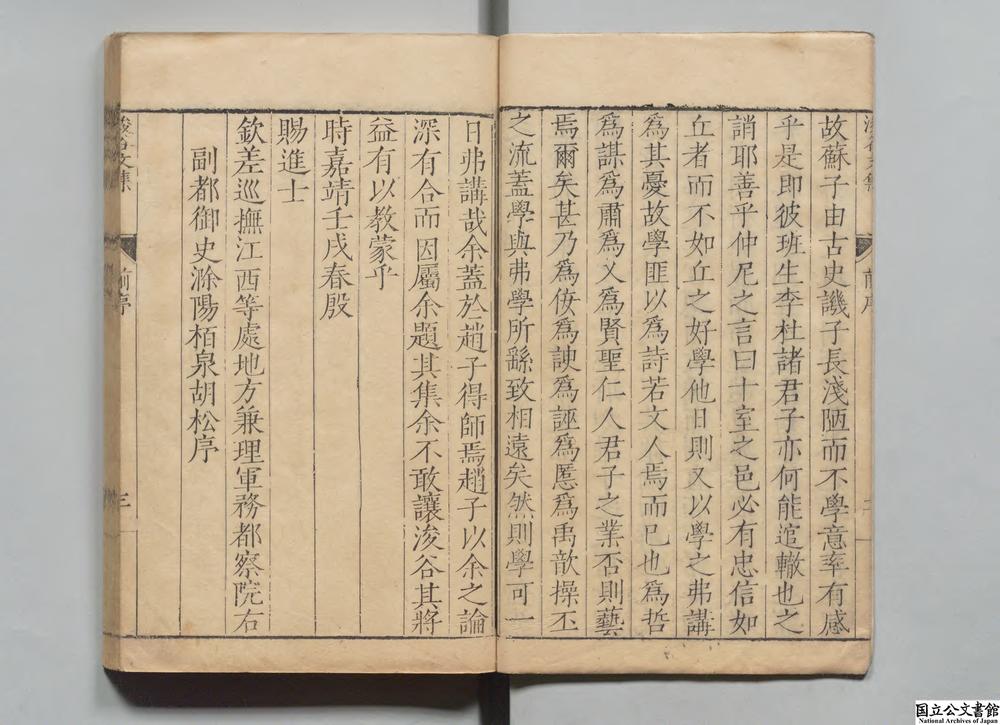 故蘇子由古史譏子長淺陋而不學意寔有感
乎是即彼班生李杜諸君子亦何能逭轍也之
誚耶善乎仲尼之言曰十室之邑必有忠信如
丘者而不如丘之好學他日則又以學之弗講
爲其憂故學匪以爲詩若文人焉而已也爲哲
爲謀爲肅爲乂爲賢聖仁人君子之業否則藝
焉爾矣甚乃爲伎爲諛爲誣爲慝爲禹歆操丕
之流蓋學與弗學所繇致相遠矣然則學可一
日弗講哉余蓋於趙子得師焉趙子以余之論
深有合而因屬余題其集余不敢讓浚谷其將
益有以教蒙乎
時嘉靖壬戌春殷
賜進士
欽差巡撫江西等處地方兼理軍務都察院右
副都御史滁陽栢泉胡松序
浚谷文集
前序
三
国立公文書館
National Archives of Japan